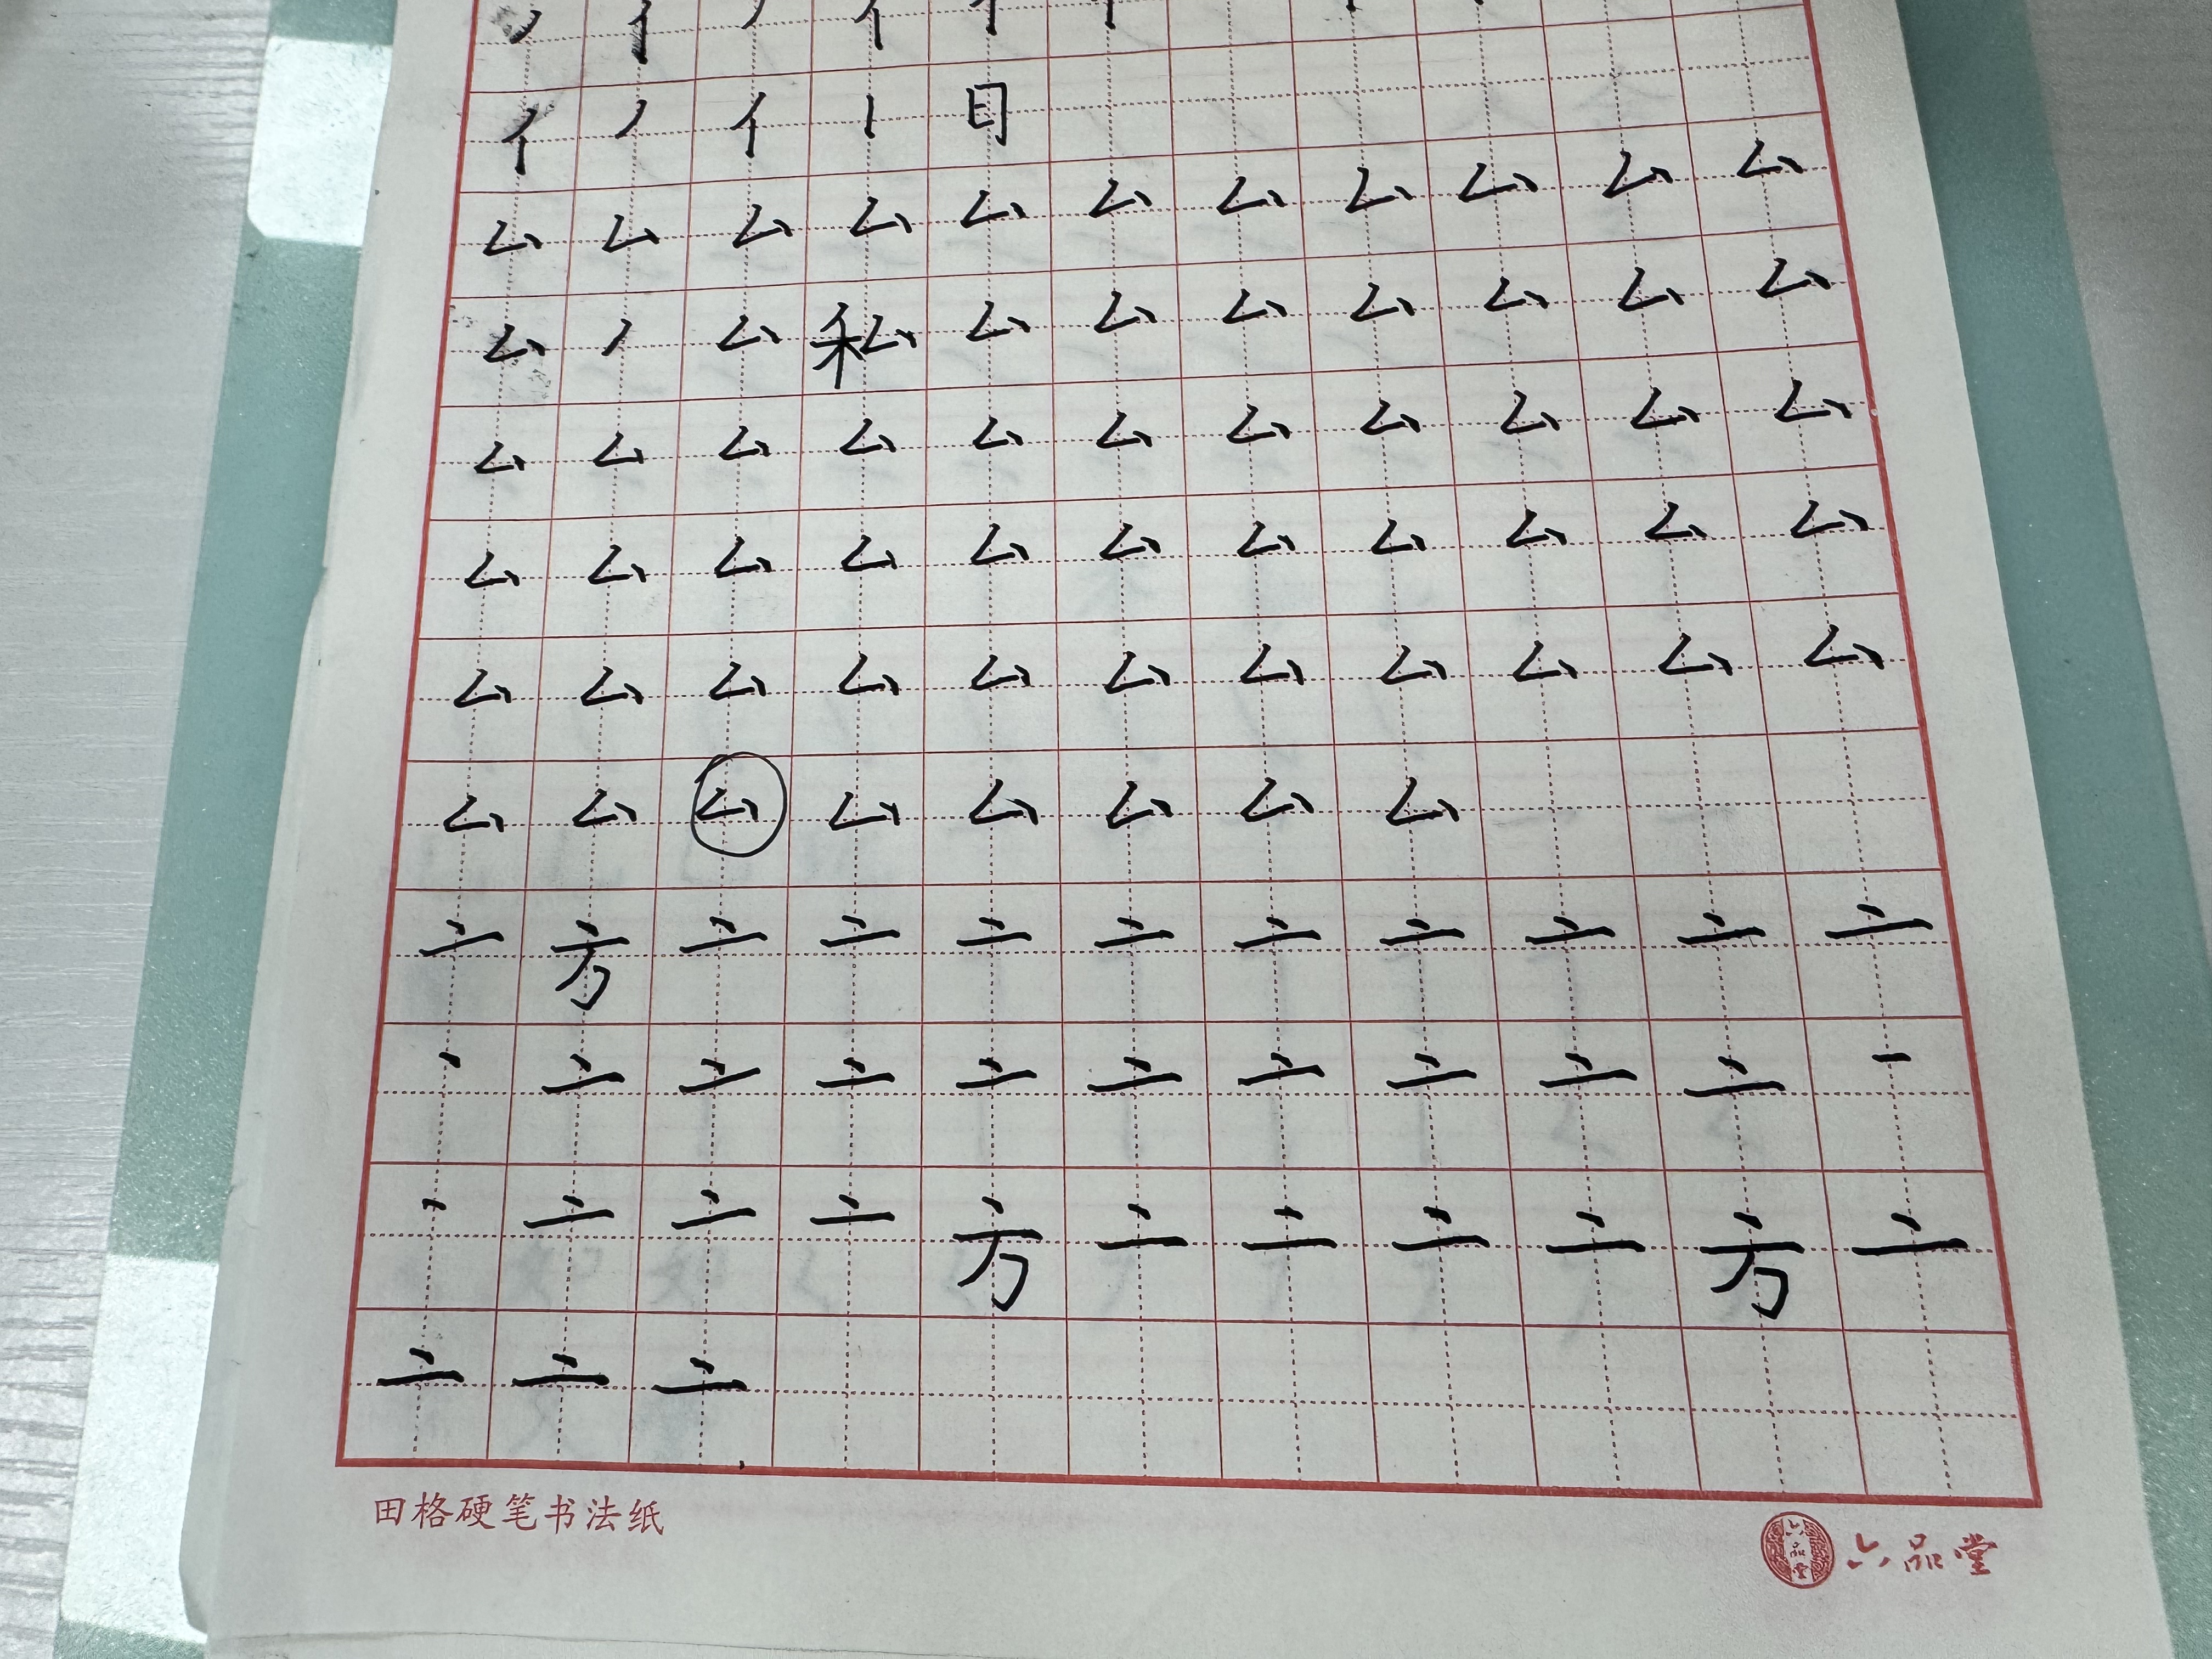 亻 丿 亻 丨 日
厶 厶 厶 厶 厶 厶 厶 厶 厶 厶 厶
厶 丿 厶 私 厶 厶 厶 厶 厶 厶 厶
厶 厶 厶 厶 厶 厶 厶 厶 厶 厶 厶
厶 厶 厶 厶 厶 厶 厶 厶 厶 厶 厶
厶 厶 厶 厶 厶 厶 厶 厶 厶 厶 厶
厶 厶 厶 厶 厶 厶 厶 厶
亠 方 亠 亠 亠 亠 亠 亠 亠 亠 亠
丶 亠 亠 亠 亠 亠 亠 亠 亠 亠 一
丶 亠 亠 亠 方 亠 亠 亠 亠 方 亠
亠 亠 亠
田格硬笔书法纸
六品堂
六品堂